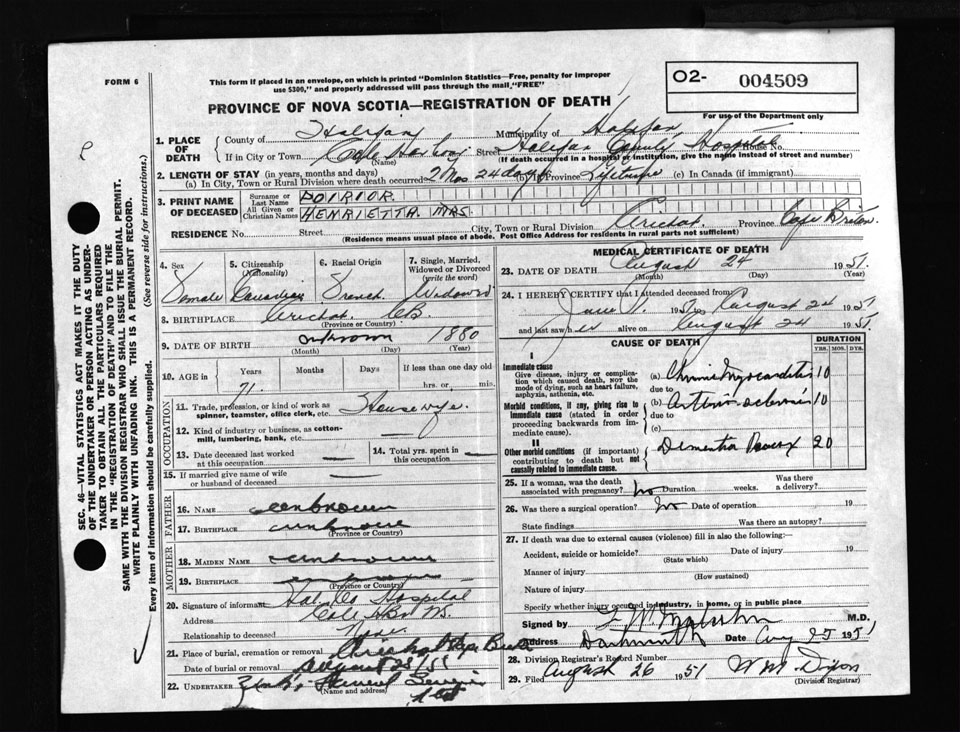 FORM 6
This form if placed in an envelope, on which is printed "Dominion Statistics—Free, penalty for improper
use $300," and properly addressed will pass through the mail "FREE"
O2- 004509
For use of the Department only
PROVINCE OF NOVA SCOTIA—REGISTRATION OF DEATH
1. PLACE OF DEATH
County of Halifax Municipality of Halifax
If in City or Town Cole Harbour Street Halifax County Hospital House No.
(Name) (If death occurred in a hospital or institution, give the name instead of street and number)
2. LENGTH OF STAY (in years, months and days)
(a) In City, Town or Rural Division where death occurred 2 Mos 24 days (b) In Province Lifetime (c) In Canada (if immigrant)
3. PRINT NAME OF DECEASED
Surname or Last Name POIRIOR
All Given or Christian Names HENRIETTA MRS.
RESIDENCE No. Street City, Town or Rural Division Arichat. Province Cape Breton.
(Residence means usual place of abode. Post Office Address for residents in rural parts not sufficient)
4. Sex Female
5. Citizenship (Nationality) Canadian
6. Racial Origin French
7. Single, Married, Widowed or Divorced (write the word) Widowed
8. BIRTHPLACE Arichat CB.
(Province or Country)
9. DATE OF BIRTH unknown 1880
(Month) (Day) (Year)
10. AGE in
Years Months Days If less than one day old
71. hrs. or min.
OCCUPATION
11. Trade, profession, or kind of work as spinner, teamster, office clerk, etc. Housewife.
12. Kind of industry or business, as cotton-mill, lumbering, bank, etc.
13. Date deceased last worked at this occupation
14. Total yrs. spent in this occupation
15. If married give name of wife or husband of deceased
FATHER
16. NAME unknown
17. BIRTHPLACE unknown
(Province or Country)
MOTHER
18. MAIDEN NAME unknown
19. BIRTHPLACE
(Province or Country)
20. Signature of informant Hal. Co Hospital
Address Cole Hbr NS.
Relationship to deceased None.
21. Place of burial, cremation or removal Arichat Cape Breton
Date of burial or removal August 28/51
22. UNDERTAKER Funeral
(Name and address) Ltd
MEDICAL CERTIFICATE OF DEATH
23. DATE OF DEATH August 24 1951.
(Month) (Day) (Year)
24. I HEREBY CERTIFY that I attended deceased from
June 1951 to August 24 1951
and last saw her alive on August 24 1951.
CAUSE OF DEATH
DURATION
YRS. MOS. DYS.
I
Immediate cause
Give disease, injury or complication which caused death, NOT the mode of dying, such as heart failure, asphyxia, asthenia, etc.
(a) Chronic Myocarditis 10
due to
Morbid conditions, if any, giving rise to immediate cause (stated in order proceeding backwards from immediate cause).
(b) Arterio-sclerosis 10
due to
(c)
II
Other morbid conditions (if important) contributing to death but not causally related to immediate cause.
Dementia Praecox 20
25. If a woman, was the death associated with pregnancy? No Duration weeks. Was there a delivery?
26. Was there a surgical operation? No Date of operation 19
State findings Was there an autopsy?
27. If death was due to external causes (violence) fill in also the following:
Accident, suicide or homicide? Date of injury 19
(State which)
Manner of injury
(How sustained)
Nature of injury
Specify whether injury occurred in industry, in home, or in public place
Signed by M.D.
Address Dartmouth Date Aug 25 1951
28. Division Registrar's Record Number
29. Filed August 26 1951 W M Dixon
(Division Registrar)
SEC. 46—VITAL STATISTICS ACT MAKES IT THE DUTY
OF THE UNDERTAKER OR PERSON ACTING AS UNDERTAKER TO OBTAIN ALL THE PARTICULARS REQUIRED
IN THE "REGISTRATION OF DEATH" AND TO FILE THE
SAME WITH THE DIVISION REGISTRAR WHO SHALL ISSUE THE BURIAL PERMIT.
WRITE PLAINLY WITH UNFADING INK. THIS IS A PERMANENT RECORD.
Every item of Information should be carefully supplied. (See reverse side for instructions.)